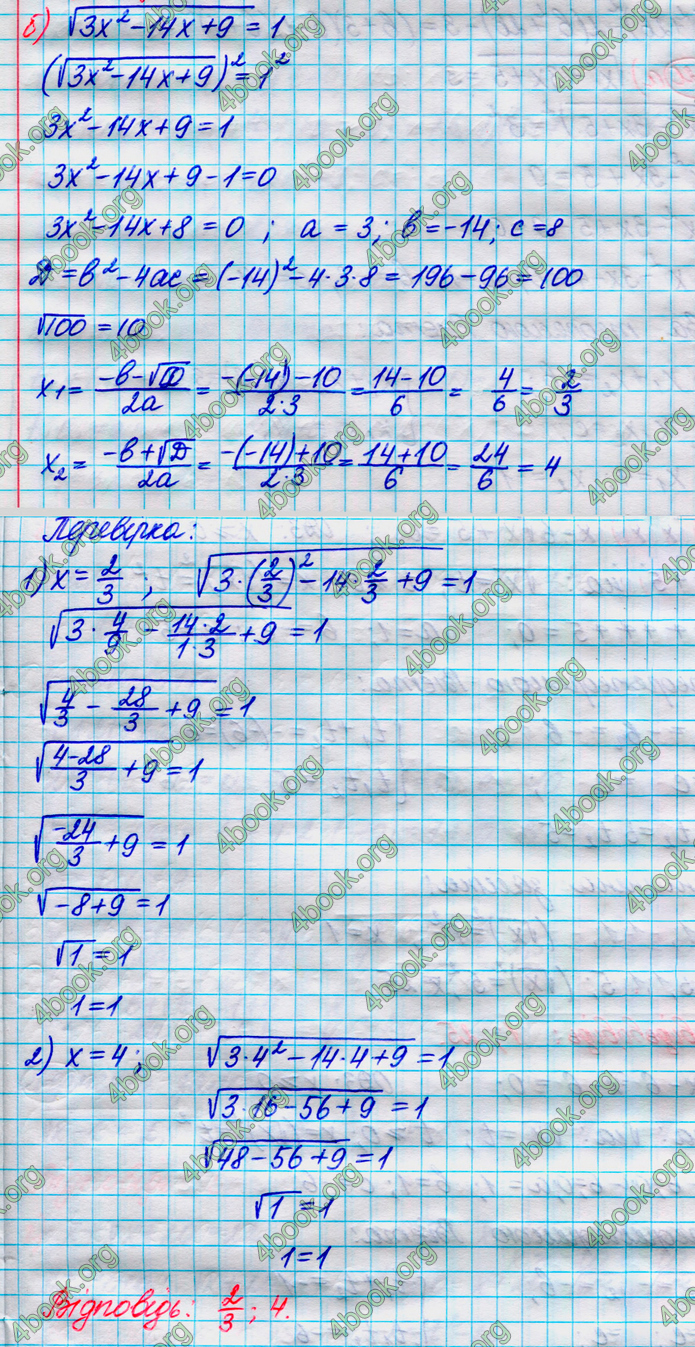 б) √(3x² - 14x + 9) = 1
(√(3x² - 14x + 9))² = 1²
3x² - 14x + 9 = 1
3x² - 14x + 9 - 1 = 0
3x² - 14x + 8 = 0 ; a = 3; b = -14; c = 8
D = b² - 4ac = (-14)² - 4·3·8 = 196 - 96 = 100
√100 = 10
x₁ = (-b - √D)/(2a) = (-(-14) - 10)/(2·3) = (14 - 10)/6 = 4/6 = 2/3
x₂ = (-b + √D)/(2a) = (-(-14) + 10)/(2·3) = (14 + 10)/6 = 24/6 = 4
Перевірка:
1) x = 2/3 ; √(3·(2/3)² - 14·2/3 + 9) = 1
√(3·4/9 - (14·2)/(1·3) + 9) = 1
√(4/3 - 28/3 + 9) = 1
√((4 - 28)/3 + 9) = 1
√(-24/3 + 9) = 1
√(-8 + 9) = 1
√1 = 1
1 = 1
2) x = 4; √(3·4² - 14·4 + 9) = 1
√(3·16 - 56 + 9) = 1
√(48 - 56 + 9) = 1
√1 = 1
1 = 1
Відповідь: 2/3 ; 4.
4book.org